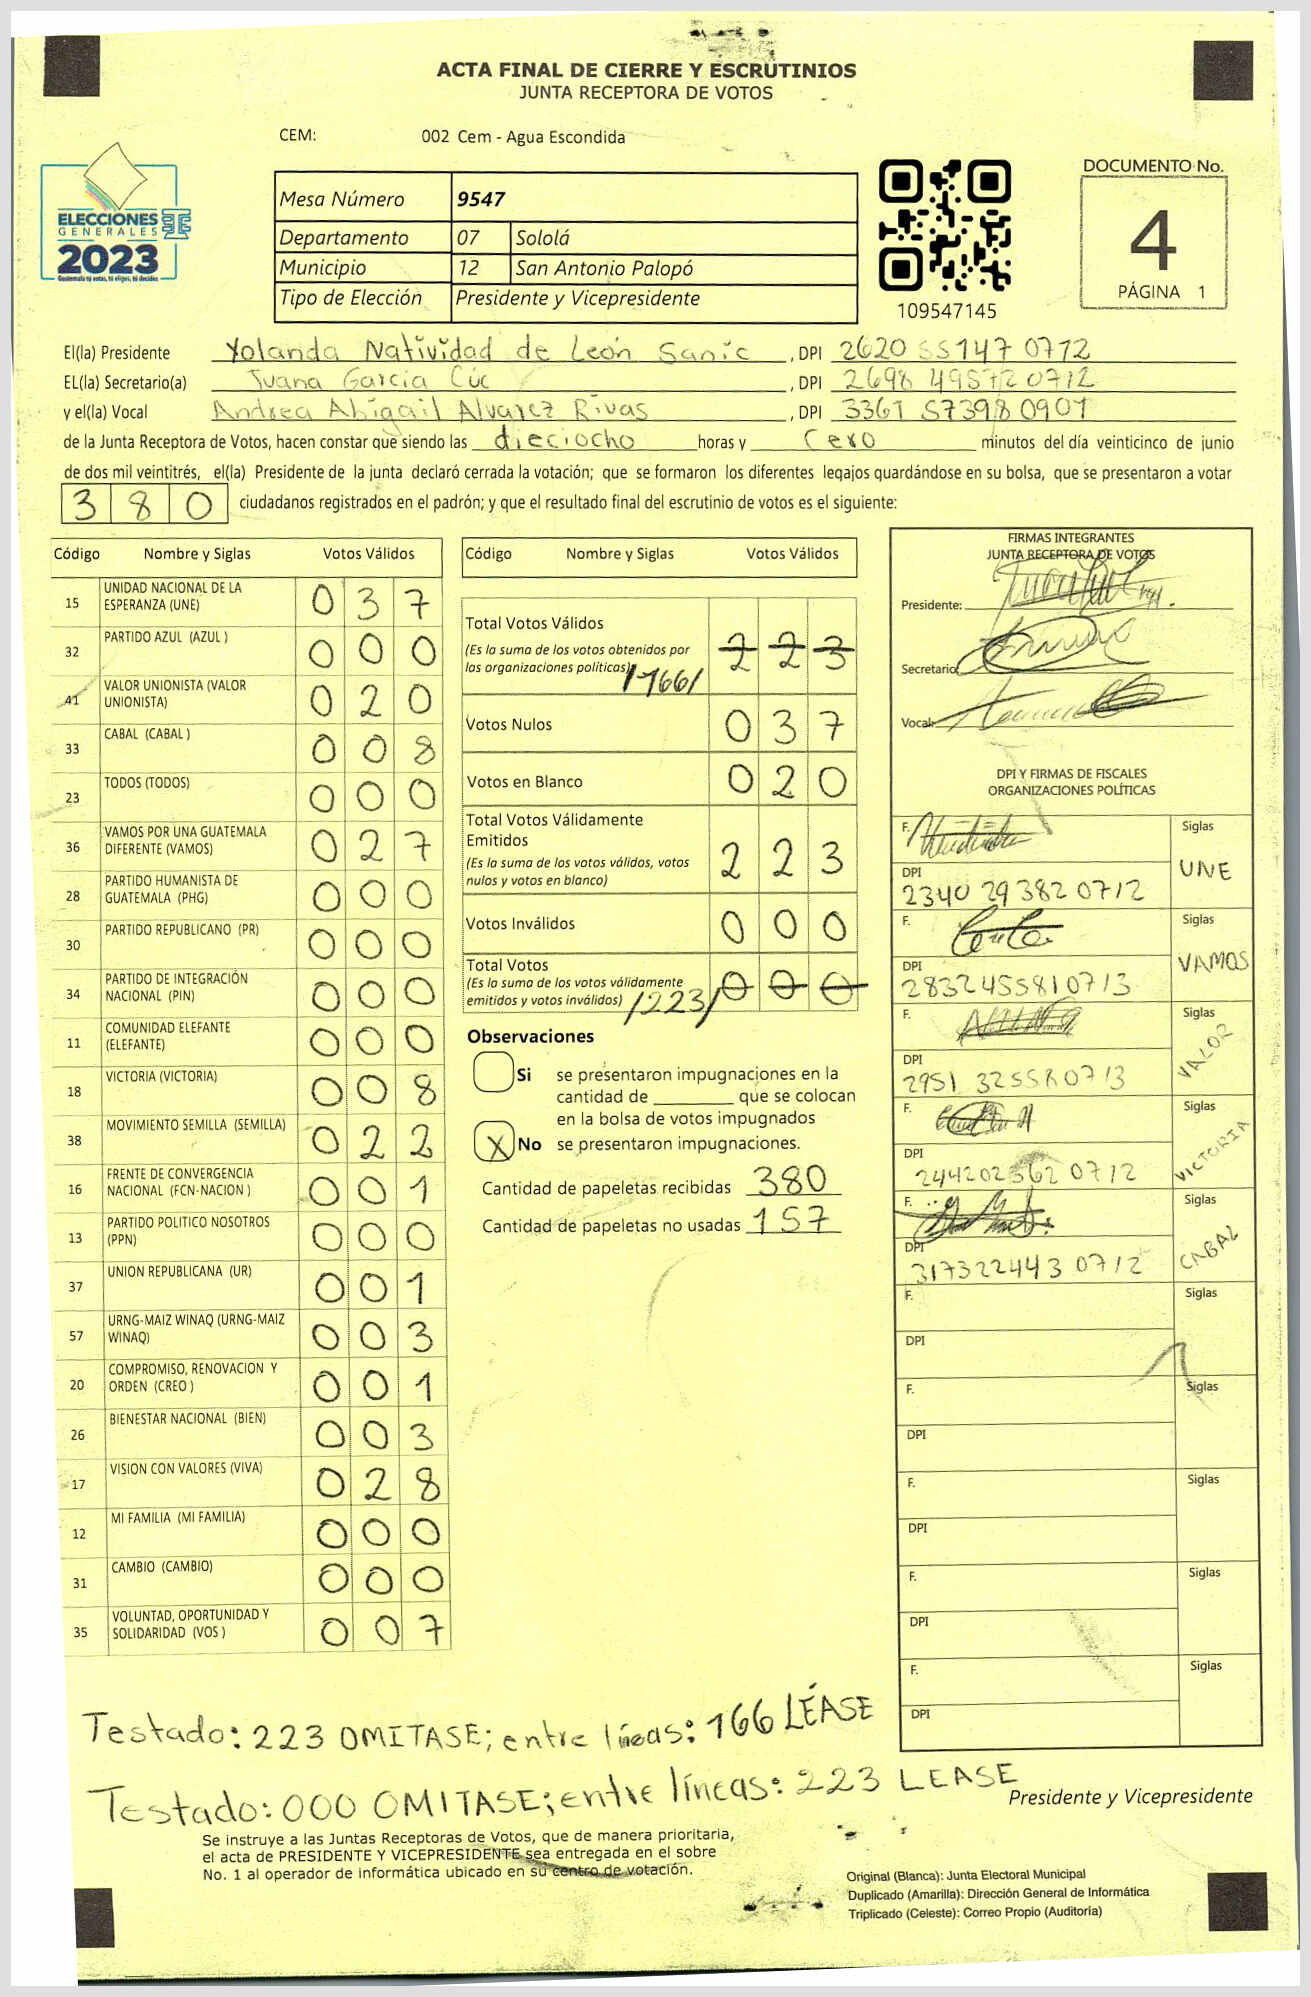 ACTA FINAL DE CIERRE Y ESCRUTINIOS
JUNTA RECEPTORA DE VOTOS
CEM: 002 Cem - Agua Escondida
ELECCIONES
GENERALES
2023
Guatemala tú votas, tú eliges, tú decides
Mesa Número 9547
Departamento 07 Sololá
Municipio 12 San Antonio Palopó
Tipo de Elección Presidente y Vicepresidente
109547145
DOCUMENTO No.
4
PÁGINA 1
El(la) Presidente Yolanda Natividad de León Sanic , DPI 2620 55147 0712
EL(la) Secretario(a) Juana García Cúc , DPI 2698 49572 0712
y el(la) Vocal Andrea Abigail Alvarez Rivas , DPI 3361 57398 0901
de la Junta Receptora de Votos, hacen constar que siendo las dieciocho horas y Cero minutos del día veinticinco de junio
de dos mil veintitrés, el(la) Presidente de la junta declaró cerrada la votación; que se formaron los diferentes legajos guardándose en su bolsa, que se presentaron a votar
380 ciudadanos registrados en el padrón; y que el resultado final del escrutinio de votos es el siguiente:
Código Nombre y Siglas Votos Válidos
15 UNIDAD NACIONAL DE LA ESPERANZA (UNE) 037
32 PARTIDO AZUL (AZUL ) 000
41 VALOR UNIONISTA (VALOR UNIONISTA) 020
33 CABAL (CABAL ) 008
23 TODOS (TODOS) 000
36 VAMOS POR UNA GUATEMALA DIFERENTE (VAMOS) 027
28 PARTIDO HUMANISTA DE GUATEMALA (PHG) 000
30 PARTIDO REPUBLICANO (PR) 000
34 PARTIDO DE INTEGRACIÓN NACIONAL (PIN) 000
11 COMUNIDAD ELEFANTE (ELEFANTE) 000
18 VICTORIA (VICTORIA) 008
38 MOVIMIENTO SEMILLA (SEMILLA) 022
16 FRENTE DE CONVERGENCIA NACIONAL (FCN-NACION ) 001
13 PARTIDO POLITICO NOSOTROS (PPN) 000
37 UNION REPUBLICANA (UR) 001
57 URNG-MAIZ WINAQ (URNG-MAIZ WINAQ) 003
20 COMPROMISO, RENOVACION Y ORDEN (CREO ) 001
26 BIENESTAR NACIONAL (BIEN) 003
17 VISION CON VALORES (VIVA) 028
12 MI FAMILIA (MI FAMILIA) 000
31 CAMBIO (CAMBIO) 000
35 VOLUNTAD, OPORTUNIDAD Y SOLIDARIDAD (VOS ) 007
Código Nombre y Siglas Votos Válidos
Total Votos Válidos
(Es la suma de los votos obtenidos por
las organizaciones políticas) /166/ 223
Votos Nulos 037
Votos en Blanco 020
Total Votos Válidamente
Emitidos
(Es la suma de los votos válidos, votos
nulos y votos en blanco) 223
Votos Inválidos 000
Total Votos
(Es la suma de los votos válidamente
emitidos y votos inválidos) /223/ 000
Observaciones
Si se presentaron impugnaciones en la
cantidad de ________ que se colocan
en la bolsa de votos impugnados
X No se presentaron impugnaciones.
Cantidad de papeletas recibidas 380
Cantidad de papeletas no usadas 157
FIRMAS INTEGRANTES
JUNTA RECEPTORA DE VOTOS
Presidente:
Secretario:
Vocal:
DPI Y FIRMAS DE FISCALES
ORGANIZACIONES POLÍTICAS
F. Siglas
UNE
DPI
2340 29382 0712
F. Siglas
VAMOS
DPI
2832455810713
F. Siglas
VALOR
DPI
F. Siglas
VICTORIA
DPI
244202362 0712
F. Siglas
CABAL
DPI
317322443 0712
F. Siglas
DPI
F. Siglas
DPI
F. Siglas
DPI
F. Siglas
DPI
F. Siglas
DPI
Testado: 223 OMITASE; entre líneas: 166 LÉASE
Testado: 000 OMITASE; entre líneas: 223 LEASE
Presidente y Vicepresidente
Se instruye a las Juntas Receptoras de Votos, que de manera prioritaria,
el acta de PRESIDENTE Y VICEPRESIDENTE sea entregada en el sobre
No. 1 al operador de informática ubicado en su centro de votación.
Original (Blanca): Junta Electoral Municipal
Duplicado (Amarilla): Dirección General de Informática
Triplicado (Celeste): Correo Propio (Auditoría)